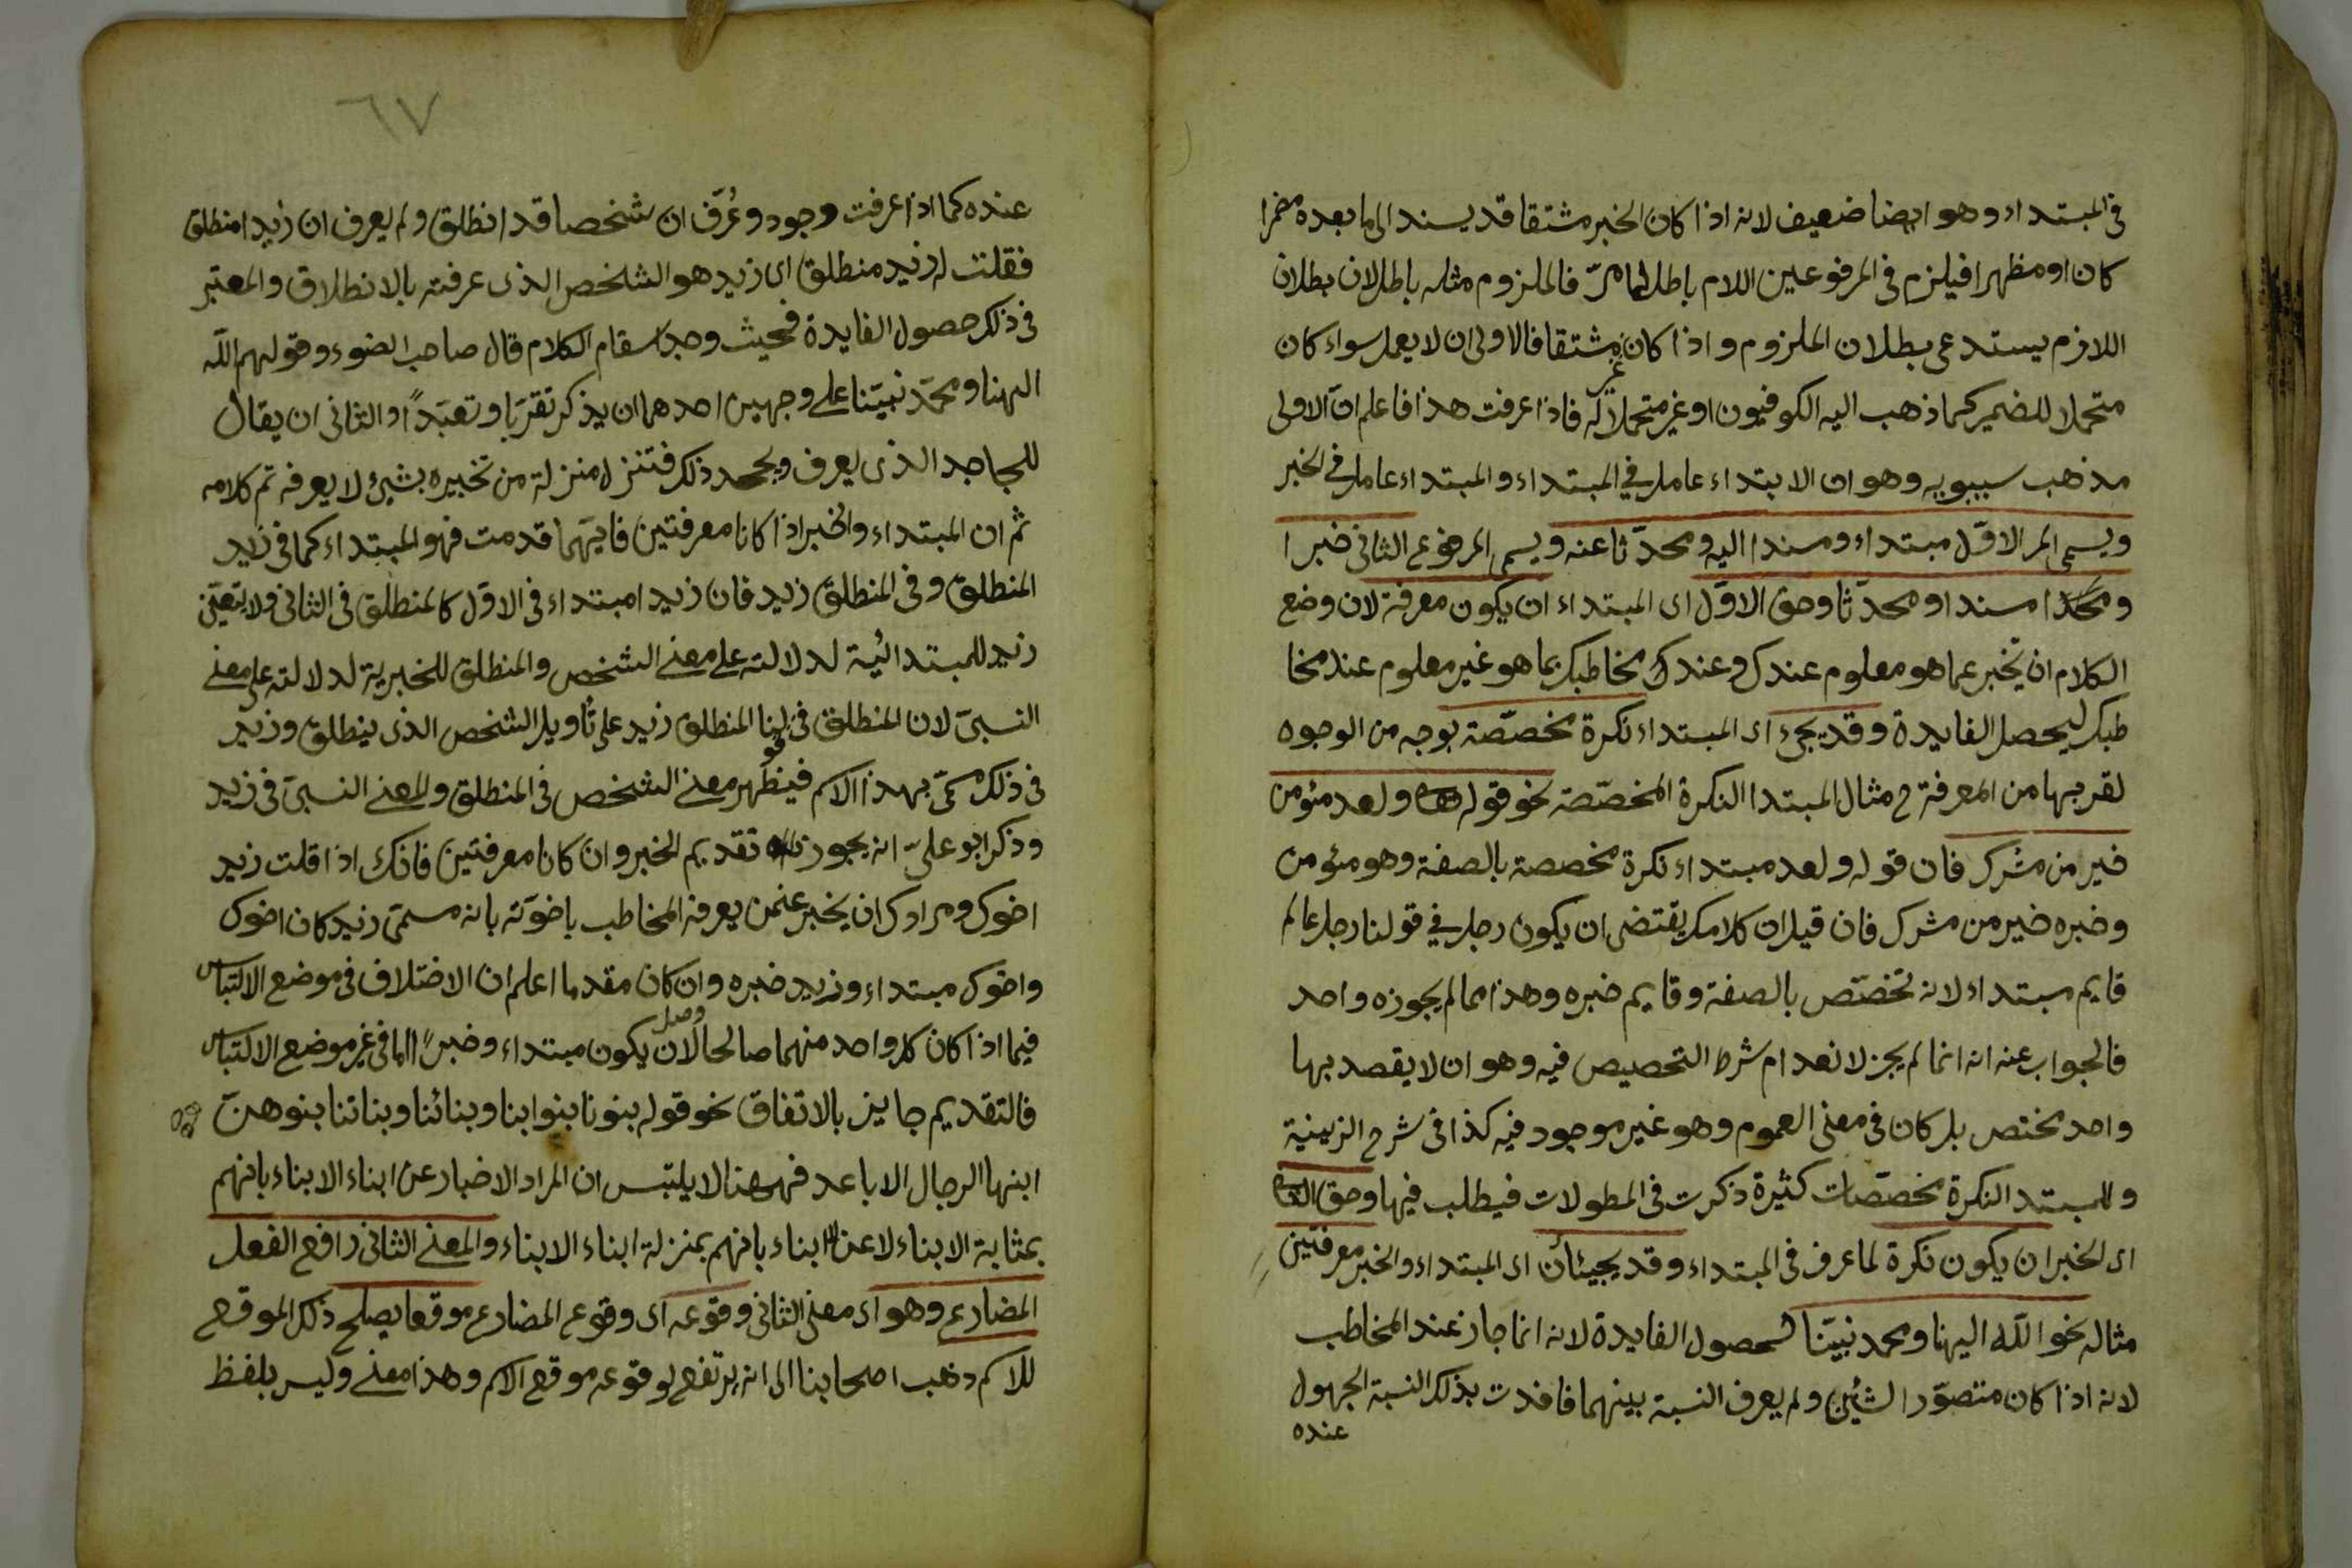 في المبتداء وهو ايضا ضعيف لانه اذا كان الخبر مشتقا قد يسند الى ما بعده مضمرا
كان او مظهرا فيلزم في المرفوعين اللام باطل لما مرّ فالملزوم مثله باطل لان بطلان
اللازم يستدعى بطلان الملزوم و اذا كان غير مشتقا فالاولى ان لا يعمل سواء كان
متحملا للضمير كما ذهب اليه الكوفيون او غير متحملا له فاذا عرفت هذا فاعلم انّ الاولى
مذهب سيبويه وهو ان الابتداء عامل في المبتداء والمبتداء عامل في الخبر
ويسمى المر الاوّل مبتداء ومسندا اليه ومحدّثا عنه ويسمى المرفوع الثانى خبرا
ومسندا ومحدّثا وحق الاوّل اى المبتداء ان يكون معرفة لان وضع
الكلام ان يخبر عما هو معلوم عندك وعند مخاطبك بما هو غير معلوم عند مخا
طبك ليحصل الفايدة وقد يجئ اى المبتداء نكرة مخصّصة بوجه من الوجوه
لقربها من المعرفة مثال المبتدا النكرة المخصّصة نحو قوله ولعبد مئومن
خير من مشرك فان قوله ولعبد مبتداء نكرة مخصصة بالصفة وهو مئومن
وخبره خير من مشرك فان قيل ان كلامك يقتضى ان يكون رجل في قولنا رجل عالم
قايم مبتداء لانه تخصّص بالصفة وقايم خبره وهذا مما لم يجوزه واحد
فالجواب عنه انه انما لم يجز لانعدام شرط التخصيص فيه وهو ان لا يقصد بها
واحد مختص بل كان في معنى العموم وهو غير موجود فيه كذا فى شرح الزينية
وللمبتد النكرة مخصّصات كثيرة ذكرت في المطولات فيطلب فيها وحق الثانى
اى الخبر ان يكون نكرة لما عرف في المبتداء وقد يجيئان اى المبتداء والخبر معرفتين
مثاله نحو اللّه الهنا ومحمد نبيّنا لحصول الفايدة لانه انما جاز عند المخاطب
لانه اذا كان متصوّر الشيئين ولم يعرف النسبة بينهما فافدت بذلك النسبة المجهول
عنده
٦٧
عنده كما اذا عرفت وجود وعُرّف ان شخصا قد انطلق ولم يعرف ان زيدا منطلق
فقلت له زيد منطلق اى زيد هو الشخص الذى عرفته بالانطلاق والمعتبر
في ذلك حصول الفايدة فحيث وجد استقام الكلام قال صاحب الضوء وقولهم اللّه
الهنا ومحمّد نبيّنا على وجهين احدهما ان يذكر تقرّبا وتعبّداً او الثانى ان يقال
للجاحد الذى يعرف ويجحد ذلك فتنزله منزلة من تخبيره بشئ لا يعرفه تم كلامه
ثم ان المبتداء والخبر اذا كانا معرفتين فايّهما قدمت فهو المبتداء كما فى زيد
المنطلق وفى المنطلق زيد فان زيدا مبتداء فى الاوّل كالمنطلق فى الثانى ولا يتعيّن
زيد للمبتدائية لدلالته على معنى الشخص والمنطلق للخبرية لدلالته على معنى
النسبىّ لان المنطلق فى قولنا المنطلق زيد على تأويل الشخص الذى ينطلق وزيد
فى ذلك سمّى بهذا الاسم فينظهر معنى الشخص فى المنطلق والمعنى النسبىّ فى زيد
وذكر ابو علىّ انه يجوز تقديم الخبر وان كانا معرفتين فانك اذا قلت زيد
اخوك ومرادك ان يخبر عنمن يعرفه المخاطب باخوّته بانه مسمّى زيد كان اخوك
واخوك مبتداء وزيد خبره وان كان مقدما اعلم ان الاختلاف فى موضع الالتباس
فيما اذا كان كل واحد منهما صالحا لان يكون مبتداء وخبراً اما فى غير موضع الالتباس
فالتقديم جايز بالاتفاق نحو قوله بنونا بنوا ابنا وبنائنا وبناتنا بنوهنّ
ابنها الرجال الاباعد فههنا لا يلتبس ان المراد الاخبار عن ابناء الابناء بانهم
بمثابة الابناء لا عن الابناء بانهم بمنزلة ابناء الابناء والمعنى الثانى رافع الفعل
المضارع وهو اى معنى الثانى وقوعه اى وقوع المضارع موقعا يصلح ذلك الموقع
للاسم ذهب اصحابنا الى انه يرتفع لوقوعه موقع الاسم وهذا معنى وليس بلفظ